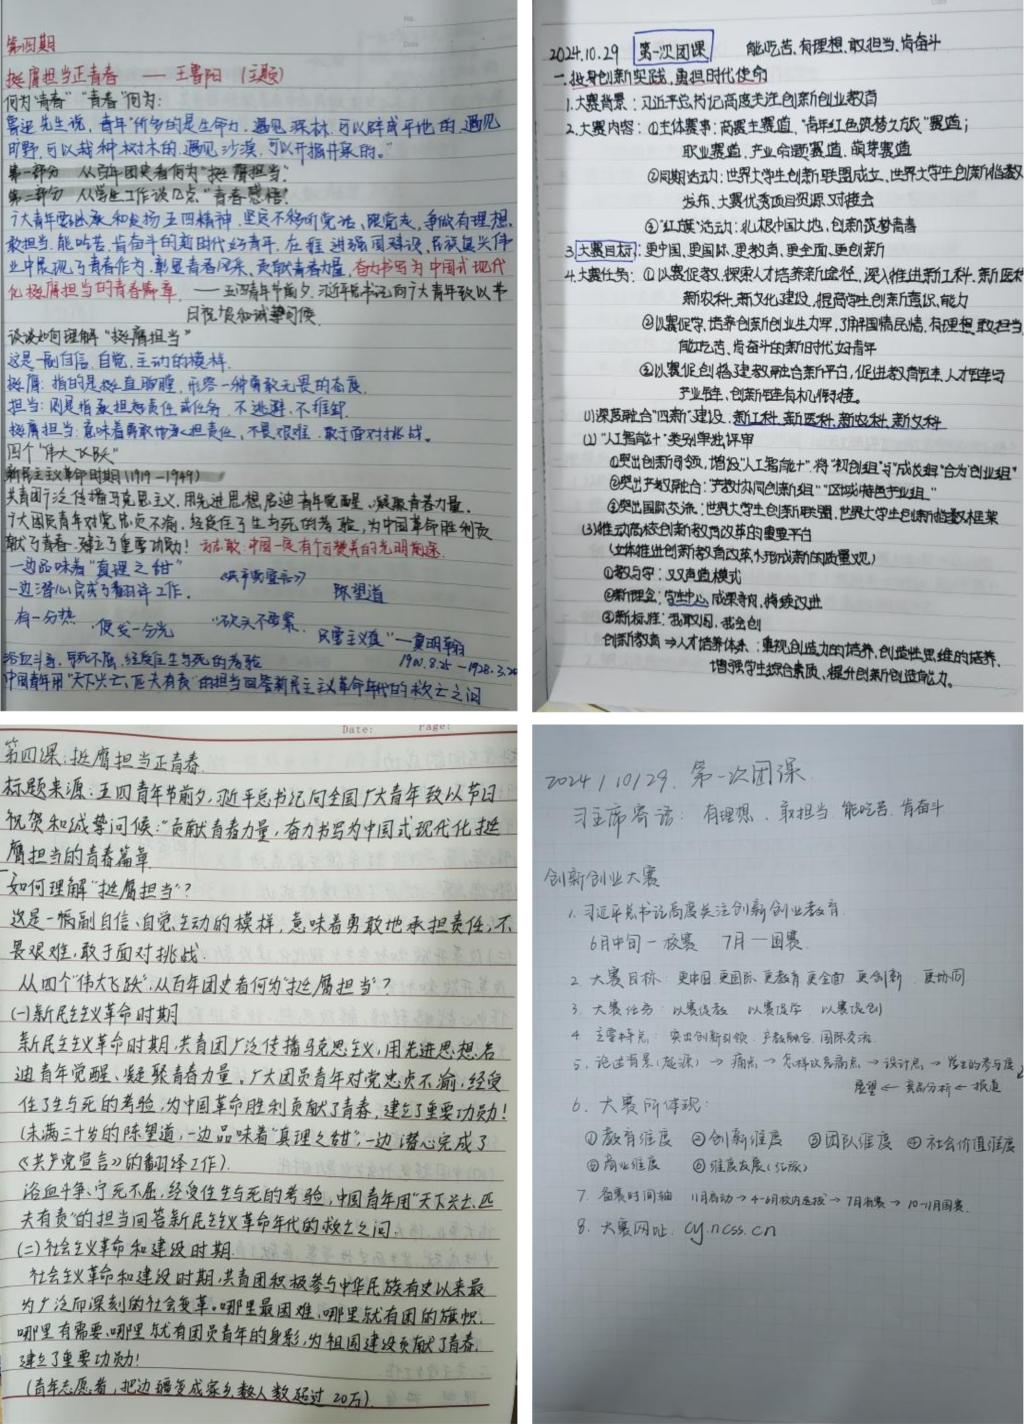 第四期
挺膺担当正青春 —— 王鲁阳 (主题)
何为"青春" "青春"何为:
鲁迅先生说,青年"所多的是生命力,遇见深林,可以辟成平地的,遇见
旷野,可以栽种树木的,遇见沙漠,可以开掘井泉的。"
第一部分 从百年团史看何为"挺膺担当"?
第二部分 从学生工作谈几点"青春感悟"?
广大青年要继承和发扬五四精神,坚定不移听党话、跟党走,争做有理想、
敢担当、能吃苦、肯奋斗的新时代好青年,在推进强国建设、民族复兴伟
业中展现了青春作为、彰显青春风采、贡献青春力量,奋力书写为中国式现代
化挺膺担当的青春篇章。 ——五四青年节前夕,习近平总书记向广大青年致以节
日祝贺和诚挚问候.
谈谈如何理解"挺膺担当"
这是一副自信、自觉、主动的模样.
挺膺:指的是挺直胸膛,形容一种勇敢无畏的态度.
担当:则是指承担起责任或任务,不逃避、不推卸.
挺膺担当:意味着勇敢地承担责任,不畏艰难,敢于面对挑战。
四个"伟大飞跃"
新民主主义革命时期(1919-1949)
共青团广泛传播马克思主义,用先进思想启迪青年觉醒、凝聚青春力量。
广大团员青年对党忠贞不渝,经受住了生与死的考验,为中国革命胜利贡
献了青春,建立了重要功勋! 方志敏:中国一定有个可赞美的光明前途.
一边品味着"真理之甜" 《共产党宣言》
一边潜心完成了翻译工作. 陈望道
有一分热 "砍头不要紧,
便发一分光 只要主义真"——夏明翰
1900.8.25-1928.3.20
浴血斗争,宁死不屈,经受住生与死的考验
中国青年用"天下兴亡,匹夫有责"的担当回答新民主主义革命年代的救亡之问
2024.10.29 第一次团课 能吃苦、有理想、敢担当、肯奋斗
一.投身创新实践,勇担时代使命
1.大赛背景:习近平总书记高度关注创新创业教育
2.大赛内容:①主体赛事:高教主赛道,"青年红色筑梦之旅"赛道;
职业赛道,产业命题赛道,萌芽赛道
②同期活动:世界大学生创新联盟成立、世界大学生创新指数
发布、大赛优秀项目资源对接会
③"红旅"活动:扎根中国大地,创新筑梦青春
3.大赛目标:更中国、更国际、更教育、更全面、更创新
4.大赛任务:①以赛促教,探索人才培养新途径,深入推进新工科、新医科
新农科、新文化建设,提高学生创新意识、能力
②以赛促学,培养创新创业生力军,了解国情民情,有理想、敢担当、
能吃苦、肯奋斗的新时代好青年
③以赛促创,搭建教融合新平台,促进教育链、人才链与
产业链、创新链有机衔接。
(1)深度融合"四新"建设,新工科、新医科、新农科、新文科
(2)"人工智能+"类别单独评审
①突出创新引领,增设"人工智能+",将"初创组"与"成长组"合为"创业组"
②突出产教融合:产教协同创新组""区域特色产业组"
③突出国际交流:世界大学生创新联盟、世界大学生创新指数框架
(3)推动高校创新教育改革的重要平台
(立体推出创新教育改革,形成新的质量观)
①教与学:双声道模式
②新理念:学生中心、成果导向、持续改进
③新标准:敢闯、会创
创新教育⇒人才培养体系:重视创造力的培养、创造性思维的培养、
增强学生综合素质、提升创新创造能力。
Date: Page:
第四课:挺膺担当正青春.
标题来源:五四青年节前夕,习近平总书记向全国广大青年致以节日
祝贺和诚挚问候:"贡献青春力量,奋力书写为中国式现代化挺
膺担当的青春篇章.
如何理解"挺膺担当"?
这是一幅副自信、自觉、主动的模样,意味着勇敢地承担责任,不
畏艰难,敢于面对挑战.
从四个"伟大飞跃",从百年团史看何为"挺膺担当"?
(一)新民主主义革命时期
新民主主义革命时期,共青团广泛传播马克思主义,用先进思想启
迪青年觉醒、凝聚青春力量。广大团员青年对党忠贞不渝,经受
住了生与死的考验,为中国革命胜利贡献了青春,建立了重要功勋!
(未满三十岁的陈望道,一边品味着"真理之甜",一边潜心完成了
《共产党宣言》的翻译工作).
浴血斗争、宁死不屈,经受住生与死的考验,中国青年用"天下兴亡,匹
夫有责"的担当回答新民主主义革命年代的救亡之问.
(二)社会主义革命和建设时期.
社会主义革命和建设时期,共青团积极参与中华民族有史以来最
为广泛而深刻的社会变革。哪里最困难,哪里就有团的旗帜.
哪里有需要、哪里就有团员青年的身影,为祖国建设贡献了青春,
建立了重要功勋!
(青年志愿者,把边疆变成家乡,数人数超过20万).
2024/10/29. 第一次团课
习主席寄语: 有理想、敢担当 能吃苦、肯奋斗
创新创业大赛
1. 习近平总书记高度关注创新创业教育.
6月中旬—校赛 7月—国赛.
2. 大赛目标: 更中国 更国际 更教育 更全面 更创新 更协同
3. 大赛任务: 以赛促教 以赛促学 以赛促创
4. 主要特点: 突出创新引领、产教融合、国际交流.
5. 论述背景(起源) → 痛点 → 怎样改善痛点 → 设计点 → 学生的参与度
展望 ← 竞品分析 ←
6. 大赛所体现:
①教育维度 ②创新维度 ③团队维度 ④社会价值维度
⑤商业维度
7. 备赛时间轴 11月启动→4-6月校内选拔→7月省赛→10-11月国赛.
8. 大赛网址. cy.ncss.cn